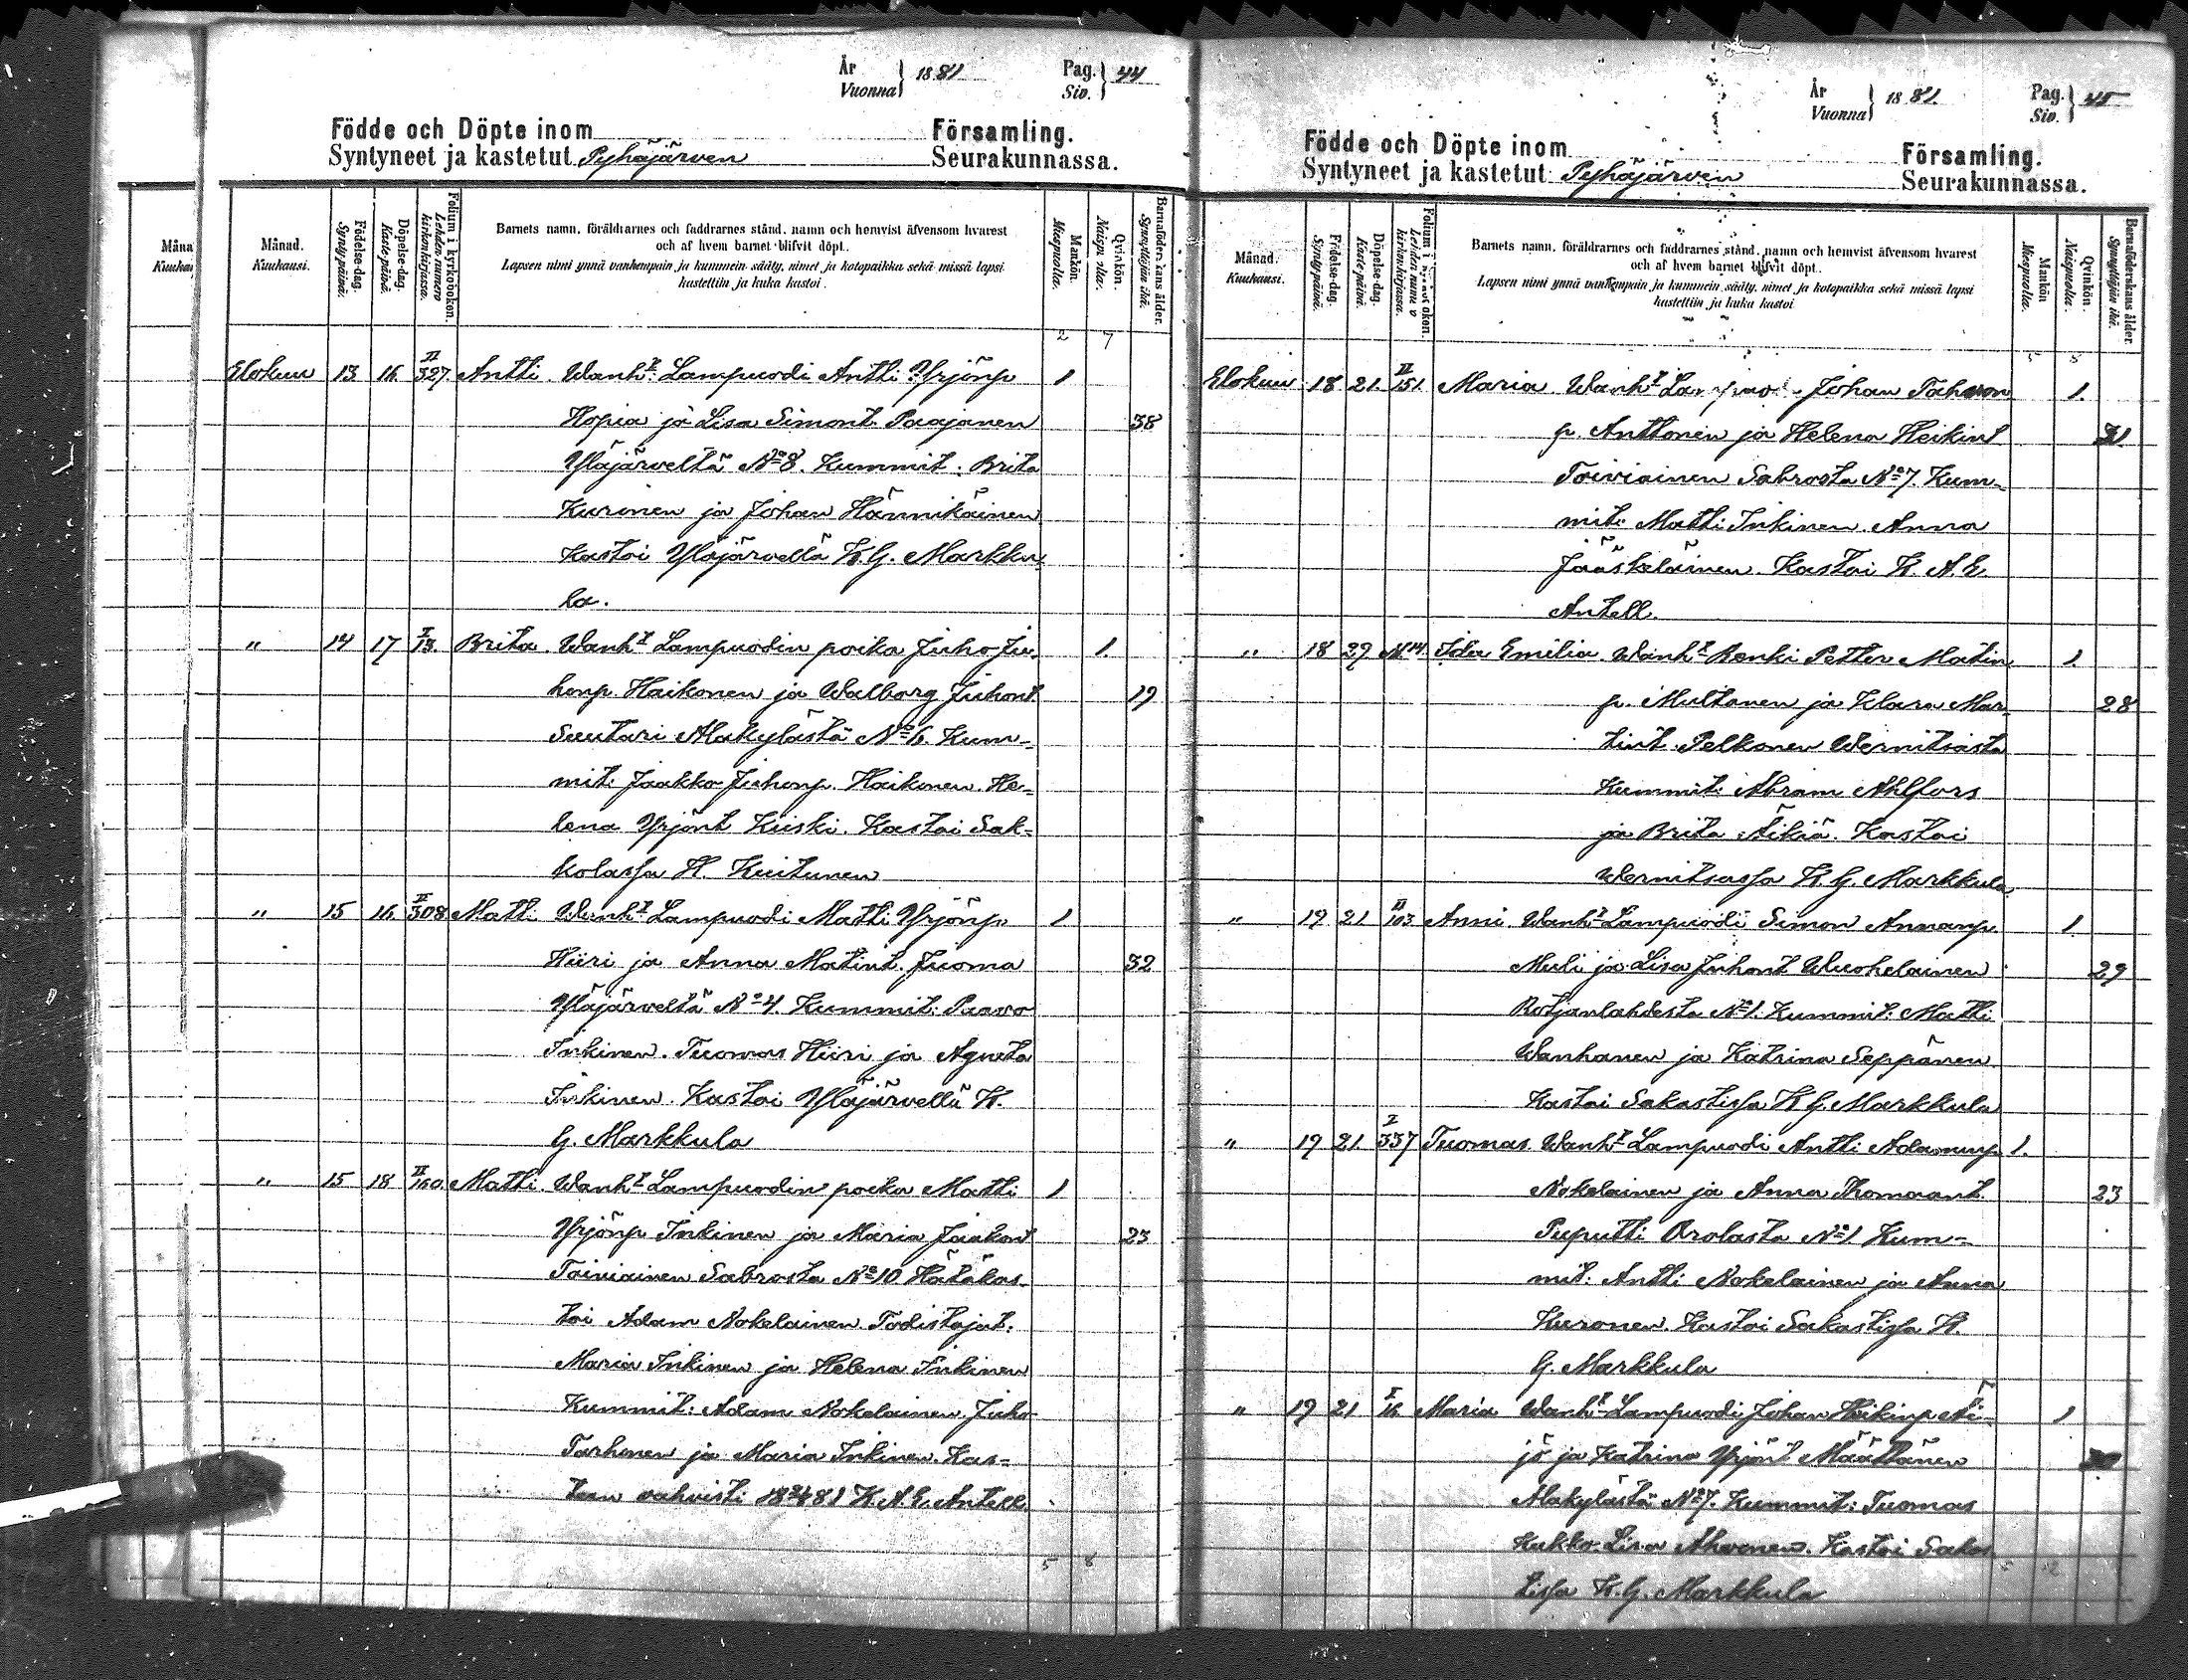 År
Vuonna } 1881 Pag.
Siv. } 44
Födde och Döpte inom Församling.
Syntyneet ja kastetut Pyhäjärven Seurakunnassa.
Månad.
Kuuhausi.
Födelse-dag.
Synty-päinä.
Döpelse-dag.
Kaste-päinä.
Folium i kyrkobokon.
Lehden numero kirkonkirjassa.
Barnets namn, föräldrarnes och faddrarnes stånd, namn och hemvist äfvensom hvarest
och af hvem barnet blifvit döpt.
Lapsen nimi ynnä vanhempain ja kummein sääty, nimet ja kotopaikka sekä missä lapsi
kastettiin ja kuka kastoi.
Mankön.
Miespuolta.
Qvinkön.
Naispuolta.
Barnaföderskans ålder.
Synnyttäjän ikä.
2 7
Elokuu 13 16 II 327. Antti. Wanht. Lampuodi Antti Yrjönp 1
Hopia ja Lisa Simont. Paajanen 38
Yläjärveltä No 8. Kummit: Brita
Kurinen ja Johan Hännikäinen
Kastoi Yläjärvellä K.G. Markku-
la.
" 14 17 I 13. Brita. Wanht Lampuodin poika Juho Ju- 1.
honp. Haikonen ja Walborg Juhont. 19
Suutari Alakylästä No 6. Kum-
mit: Jaakko Juhonp. Haikonen. He-
lena Yrjönt Kiiski. Kastoi Sak-
kolassa H. Kiitunen
" 15 16 II 308 Matti. Wanht Lampuodi Matti Yrjönp. 1
Hiiri ja Anna Matint. Juoma 32
Yläjärveltä No 4. Kummit: Paavo
Inkinen. Tuomas Hiiri ja Agneta
Inkinen. Kastoi Yläjärvellä K.
G. Markkula
" 15 18 II 160. Matti. Wanht Lampuodin poika Matti 1
Yrjönp Inkinen ja Maria Jaakont 23
Toiviainen Sabrosta No 10 Hätäkas-
toi Adam Nokelainen. Todistajat:
Maria Inkinen ja Helena Inkinen
Kummit: Adam Nokelainen. Juho
Tarhonen ja Maria Inkinen. Kas-
teen vahvisti 81 K. A. E. Antell.
5 8
År
Vuonna } 1881. Pag.
Siv. } 45
Födde och Döpte inom Församling.
Syntyneet ja kastetut Pyhäjärven Seurakunnassa.
Månad.
Kuuhausi.
Födelse-dag.
Synty-päinä.
Döpelse-dag.
Kaste-päinä.
Barnets namn, föräldrarnes och faddrarnes stånd, namn och hemvist äfvensom hvarest
och af hvem barnet blifvit döpt.
Lapsen nimi ynnä vanhempain ja kummein sääty, nimet ja kotopaikka sekä missä lapsi
kastettiin ja kuka kastoi
Mankön
Miespuolta.
Qvinkön.
Naispuolta.
Barnaföderskans ålder.
Synnyttäjän ikä.
Elokuu 18 21. II 151. Maria. Wanht Johan 1.
p. Anttonen ja Helena Heikint 31
Toiviainen Sabrosta No 7. Kum-
mit: Matti Inkinen. Anna
Jääskeläinen. Kastoi K. A. E.
Antell.
" 18 29 Ida Emilia. Wanht Renki Petter Matin 1.
p. Multanen ja Klara Mar- 28
tint. Pelkonen Wernitsasta
Kummit: Abram Ahlfors
ja Brita Äikiä. Kastoi
Wernitsassa K. G. Markkula
" 19 21 II 103 Anni. Wanht Lampuodi Simon Annanp. 1.
Muli ja Lisa Juhont Wuohelainen 29
Rotjanlahdesta No 1. Kummit: Matti
Wanhanen ja Katrina Seppänen.
Kastoi Sakastissa K G. Markkula
" 19 21. I 337 Tuomas. Wanht Lampuodi Antti Adaminp. 1.
Nokelainen ja Anna Thomaant. 23
Puputti Orolasta No 1 Kum-
mit: Antti Nokelainen ja Anna
Kuronen. Kastoi Sakastissa K.
G. Markkula
" 19 21 I 16 Maria Wanht Lampuodi Johan Heikinp Äi- 1
jö ja Katrina Yrjönt Määttänen
Alakylästä No 7. Kummit: Tuomas
Kukko. Lisa Ahvonen. Kastoi Sakas
tissa K. G. Markkula